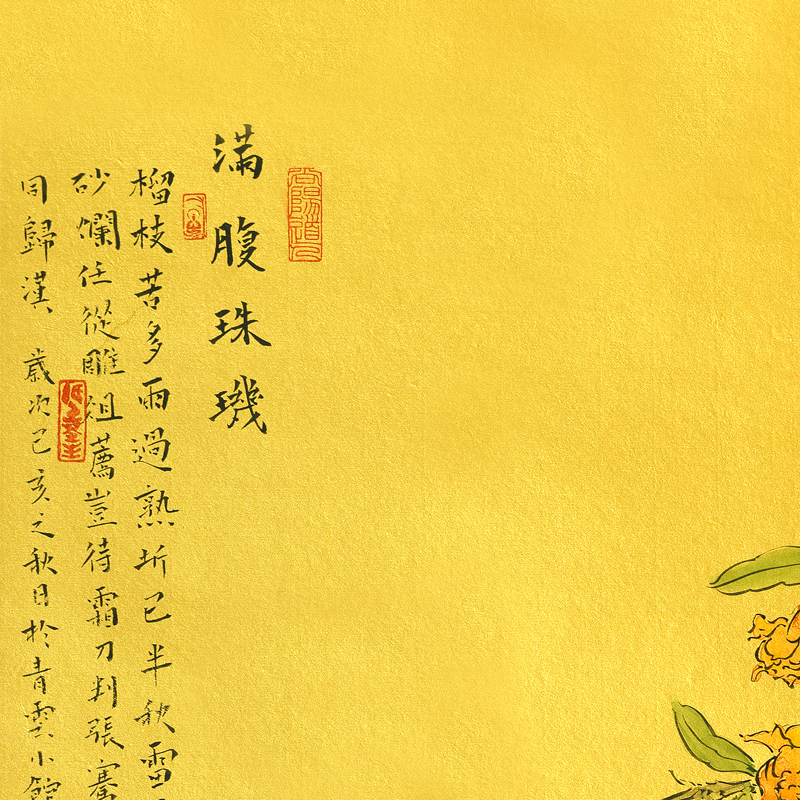 滿腹珠璣
榴枝苦多雨過熟坼已半秋雷
砂爛任從雕俎薦豈待霜刀判張騫
同歸漢歲次己亥之秋日於青雲小館